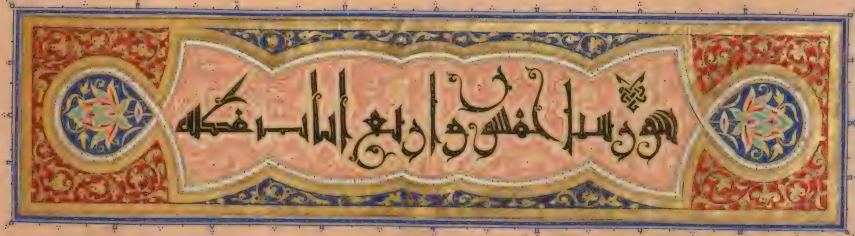 سورة سبا خمسون واربع ايات مكية